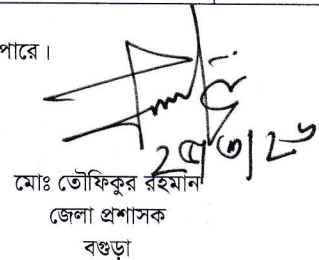 পারে।
২৫/৩/২৬
মোঃ তৌফিকুর রহমান
জেলা প্রশাসক
বগুড়া